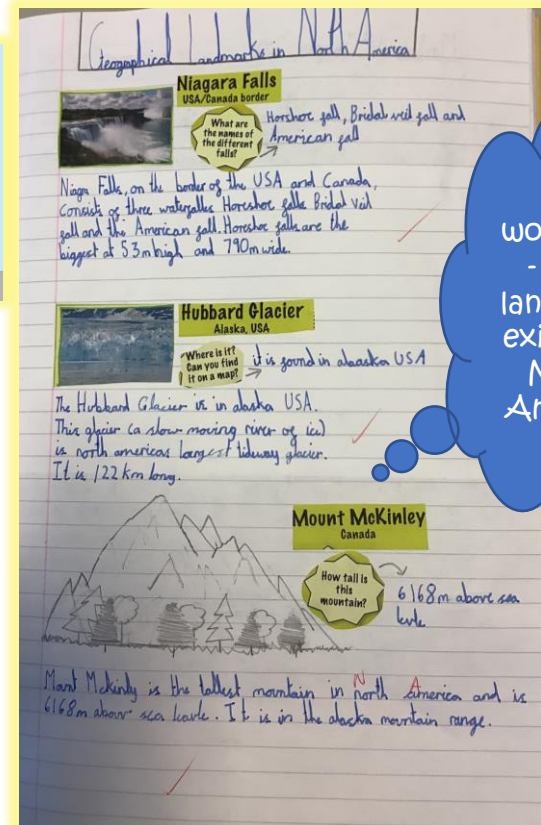 Geographical Landmarks in North America
Niagara Falls
USA/Canada border
What are
the names of
the different
falls?
Horshoe fall, Bridal veil fall and
American fall
Niagra Falls, on the border of the USA and Canada,
consists of three waterfalls Horeshoe falls Bridal Veil
fall and the American fall. Horeshoe falls are the
biggest at 53m high and 790m wide.
Hubbard Glacier
Alaska, USA
Where is it?
Can you find
it on a map?
it is found in alaaska USA
The Hubbard Glacier is in alaska USA.
This glacier (a slow moving river of ice)
is north americas largest tideway glacier.
It is 122 km long.
Mount McKinley
Canada
How tall is
this
mountain?
6168m above sea
levle
Mount Mckinly is the tallest mountain in North America and is
6168m above sea leavle. It is in the alaska mountain range.